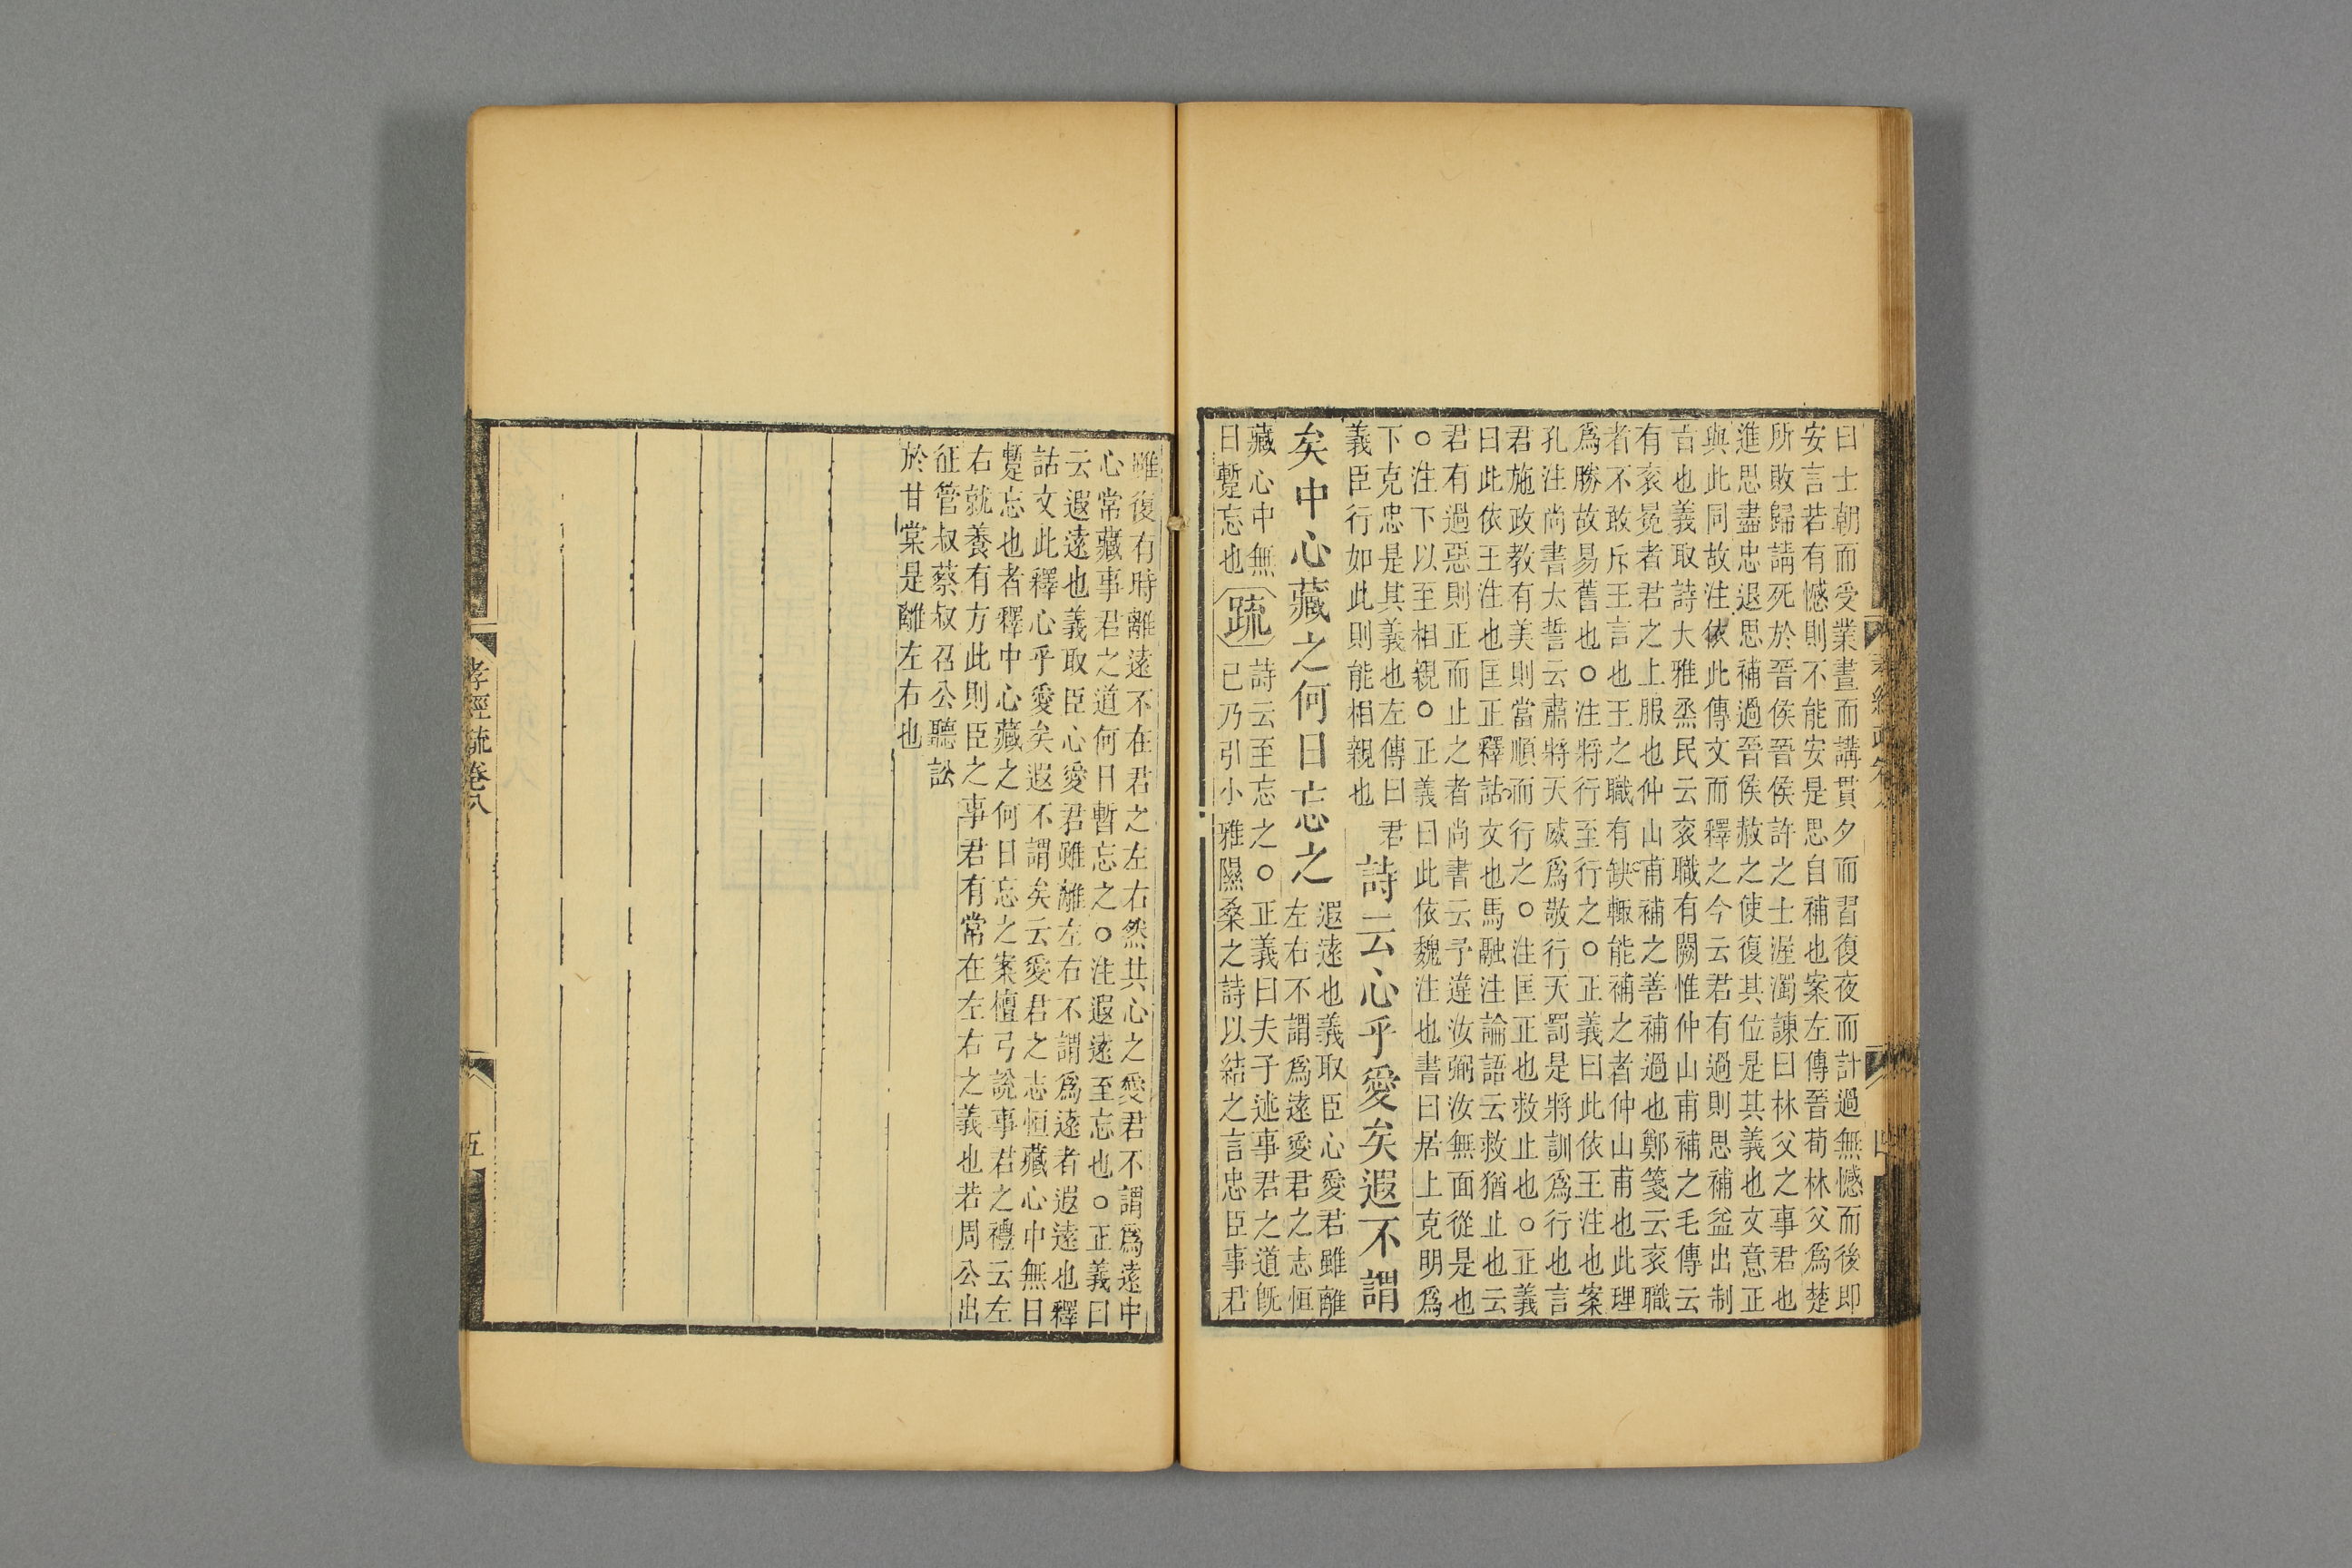 曰士朝而受業晝而講貫夕而習復夜而計過無憾而後即
安言若有憾則不能安是思自補也案左傳晉荀林父爲楚
所敗歸請死於晉侯晉侯許之士渥濁諫曰林父之事君也
進思盡忠退思補過晉侯赦之使復其位是其義也文意正
與此同故注依此傳文而釋之今云君有過則思補益出制
旨也義取詩大雅烝民云衮職有闕惟仲山甫補之毛傳云
有衮冕者君之上服也仲山甫補之善補過也鄭箋云衮職
者不敢斥王言也王之職有缺輒能補之者仲山甫也此理
爲勝故易舊也○注將行至行之○正義曰此依王注也案
孔注尚書太誓云肅將天威爲敬行天罰是將訓爲行也言
君施政教有美則當順而行之○注匡正也救止也○正義
曰此依王注也匡正釋詁文也馬融注論語云救猶止也云
君有過惡則正而止之者尚書云予違汝弼汝無面從是也
○注下以至相親○正義曰此依魏注也書曰居上克明爲
下克忠是其義也左傳曰君
義臣行如此則能相親也
詩云心乎愛矣遐不謂
矣中心藏之何日忘之
遐遠也義取臣心愛君雖離
左右不謂爲遠愛君之志恒
藏心中無
日蹔忘也
疏
詩云至忘之○正義曰夫子述事君之道旣
已乃引小雅隰桑之詩以結之言忠臣事君
雖復有時離遠不在君之左右然其心之愛君不謂爲遠中
心常藏事君之道何日暫忘之○注遐遠至忘也○正義曰
云遐遠也義取臣心愛君雖離左右不謂爲遠者遐遠也釋
詁文此釋心乎愛矣遐不謂矣云愛君之志恒藏心中無日
蹔忘也者釋中心藏之何日忘之案檀弓說事君之禮云左
右就養有方此則臣之事君有常在左右之義也若周公出
征管叔蔡叔召公聽訟
於甘棠是離左右也
孝經疏卷八
五